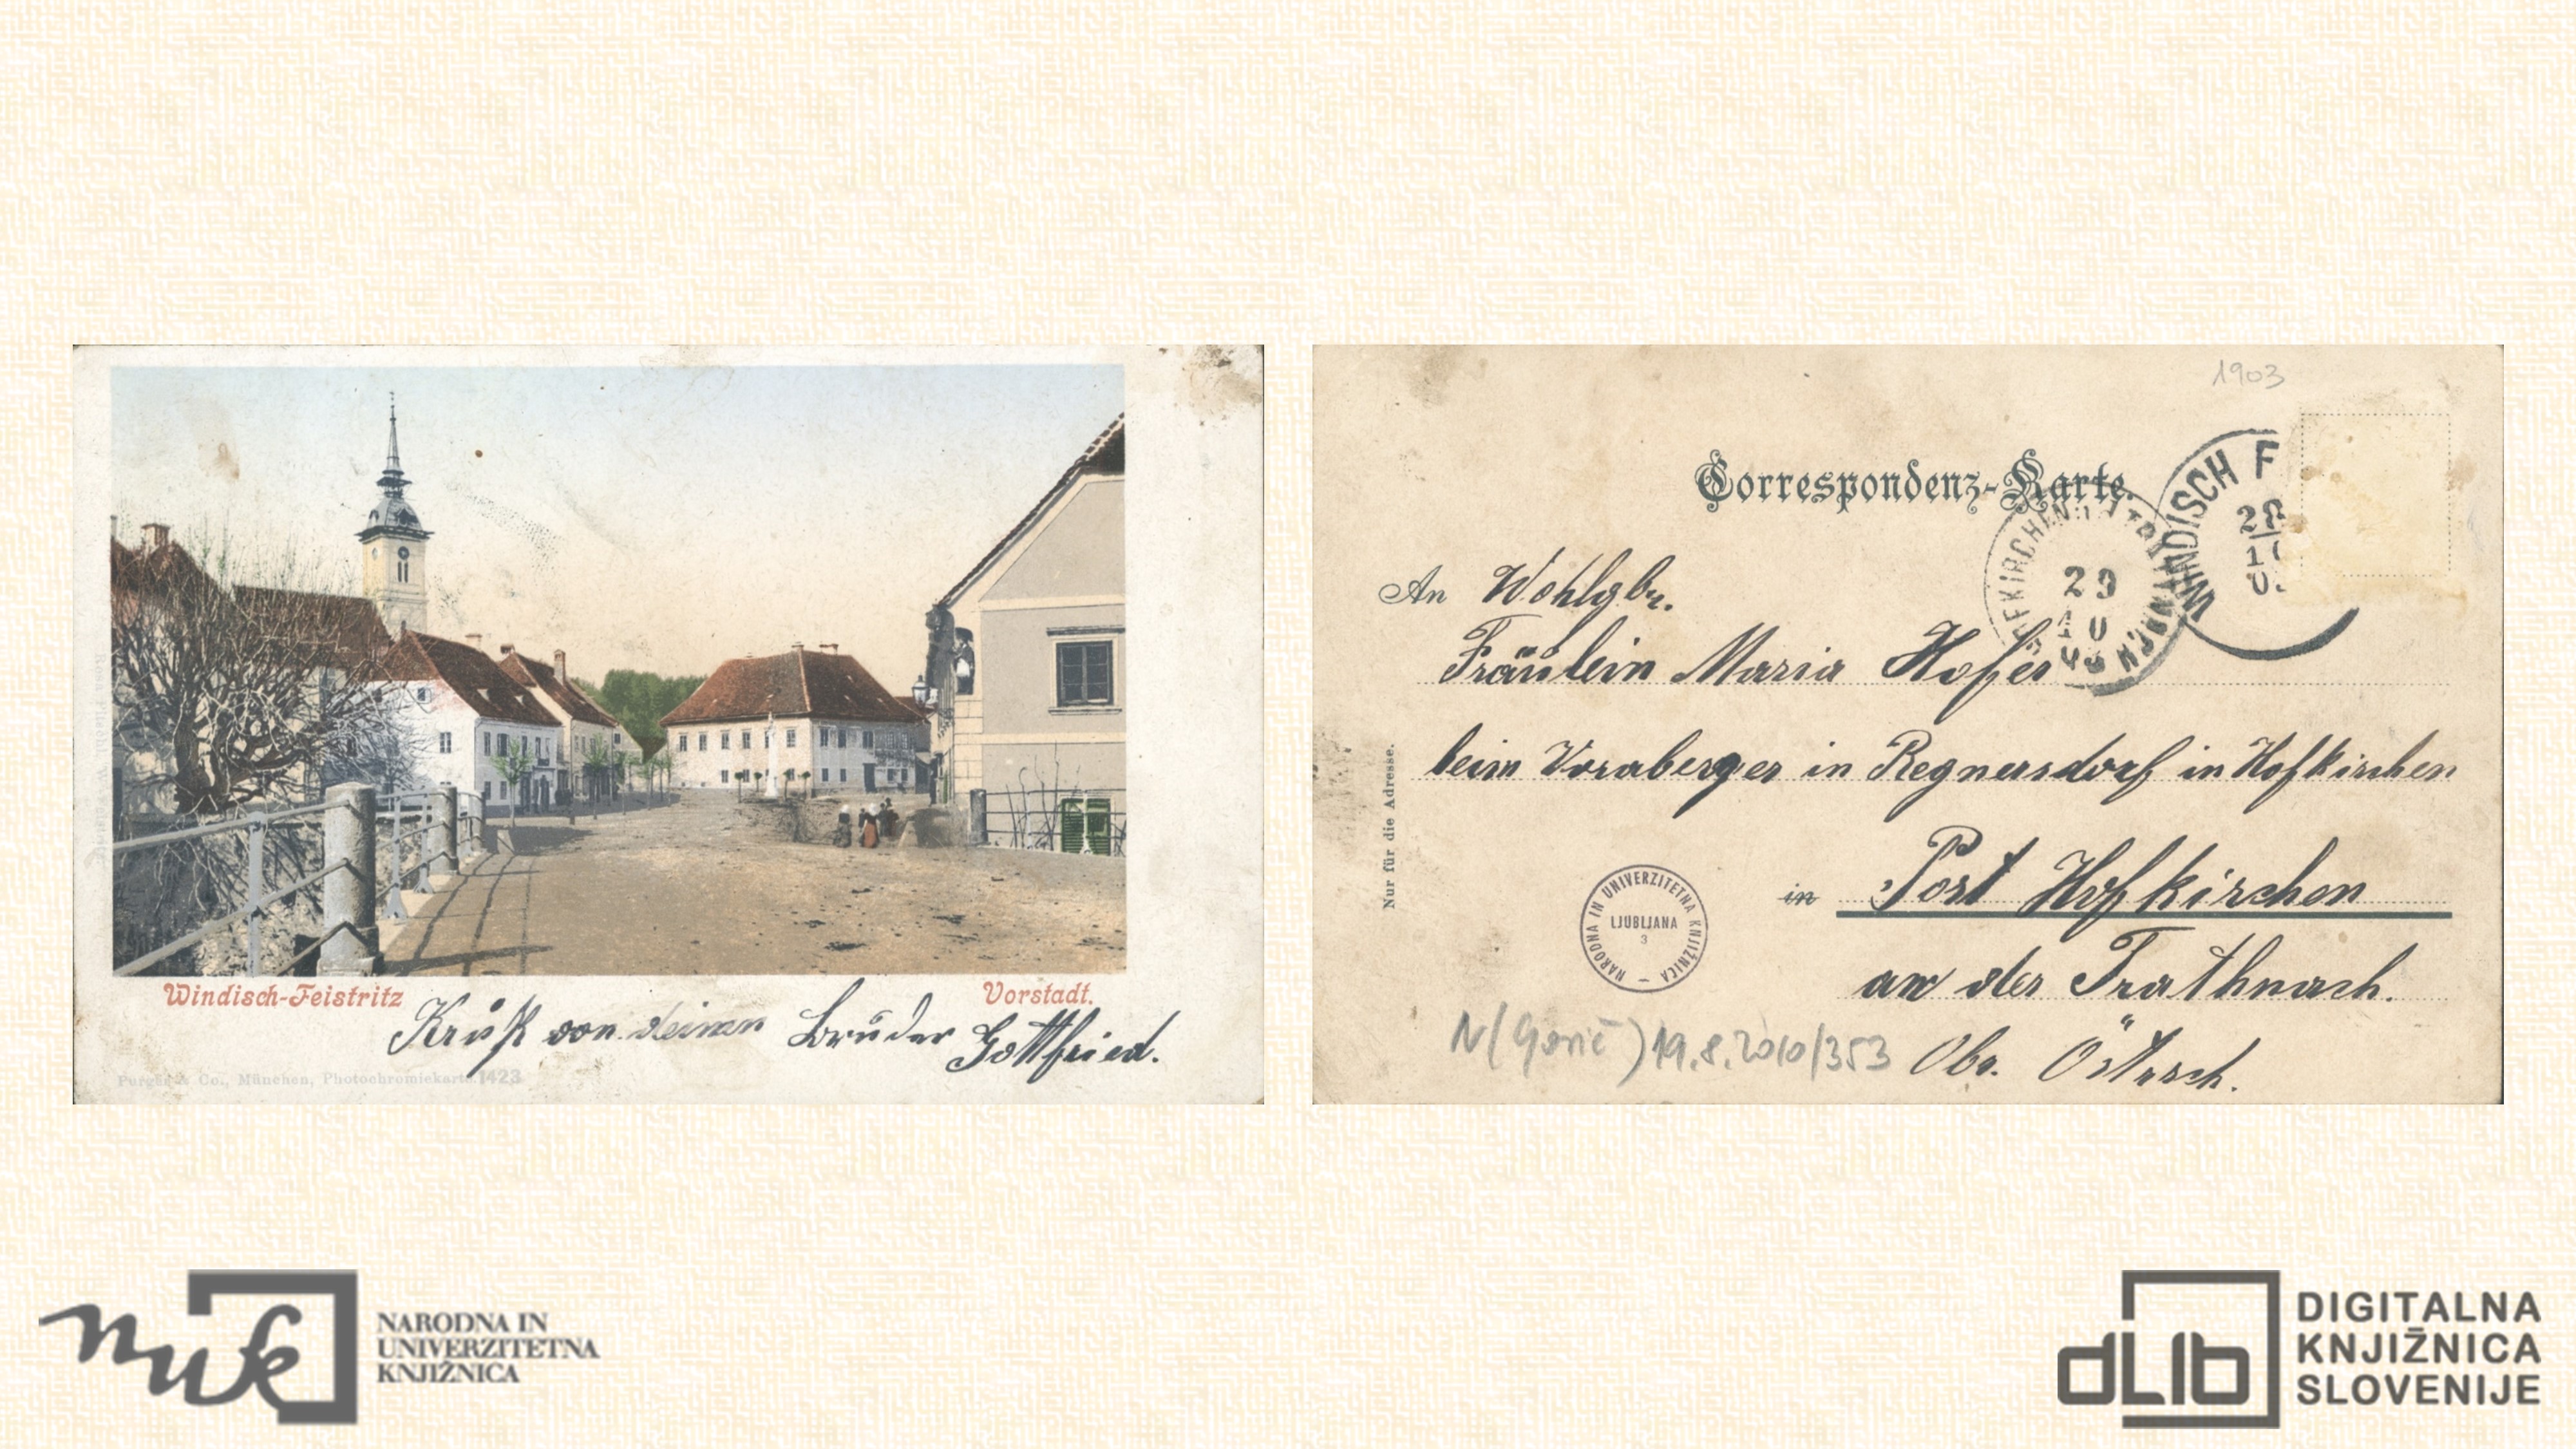 Windisch-Feistritz
Vorstadt.
Kruß von deinen Bruder Gottfried.
Purger & Co., München, Photochromiekarte. 1423
1903
Correspondenz-Karte.
WINDISCH F
29
10
An Wohlgbr.
Fräulein Maria Hofer
beim Voraberger in Regnersdorf in Hofkirchen
in Post Hofkirchen
an der Trathnach.
Obr. Östrsch.
Nur für die Adresse.
NARODNA IN UNIVERZITETNA KNJIŽNICA
LJUBLJANA
3
N(Gorič) 19.8.2010/353
nuk
NARODNA IN
UNIVERZITETNA
KNJIŽNICA
dLib
DIGITALNA
KNJIŽNICA
SLOVENIJE